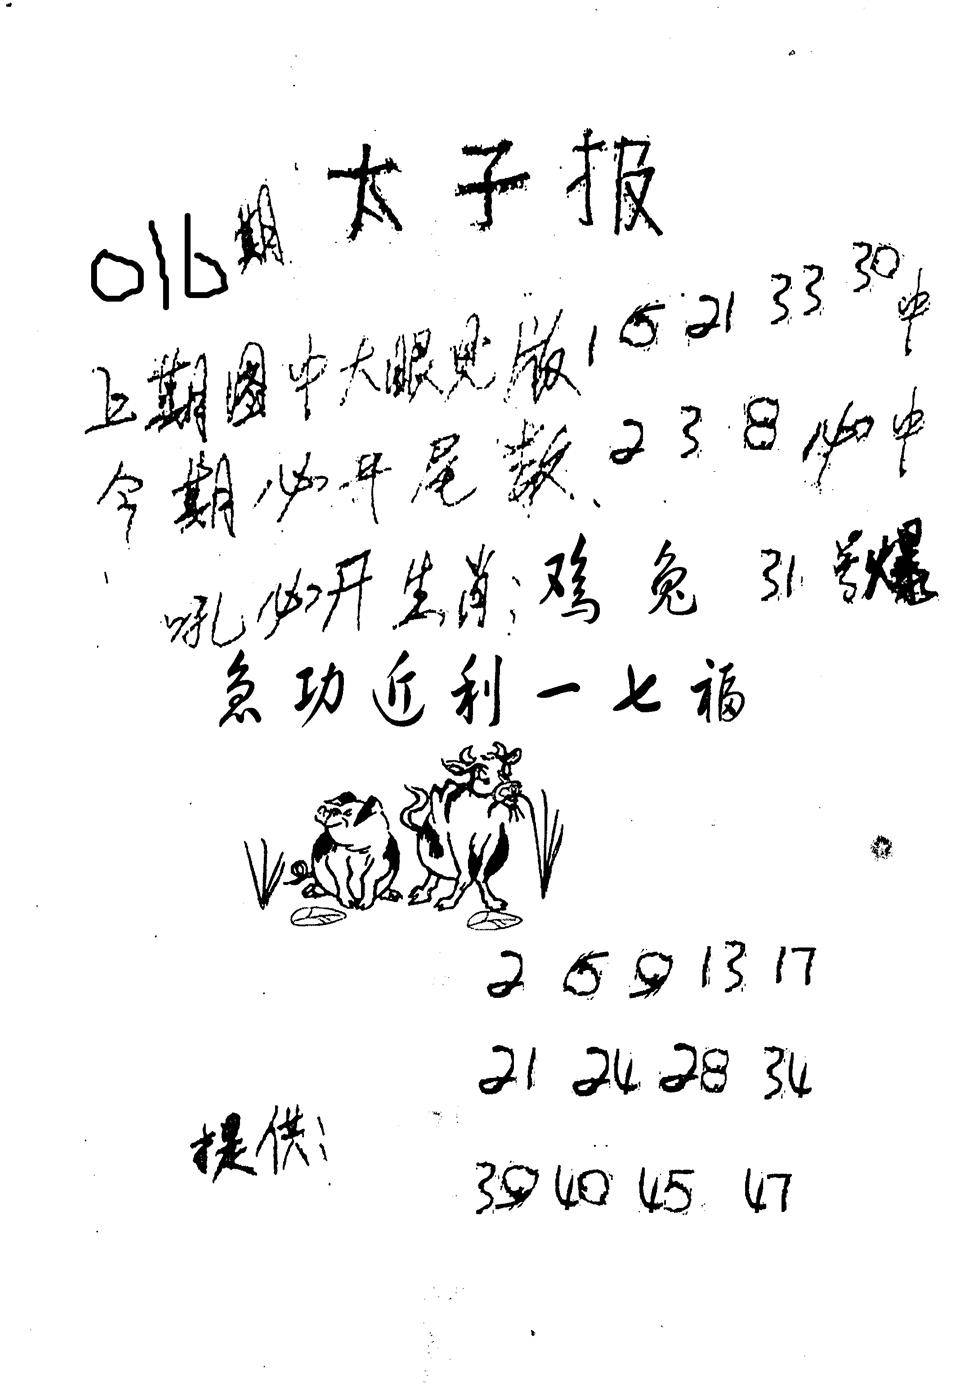 太子报
016期
上期图中大眼见版1 5 21 33 30中
今期必开尾数、2 3 8必中
吼必开生肖:鸡兔 31号爆
急功近利一七福
2 5 9 13 17
21 24 28 34
提供:
39 40 45 47